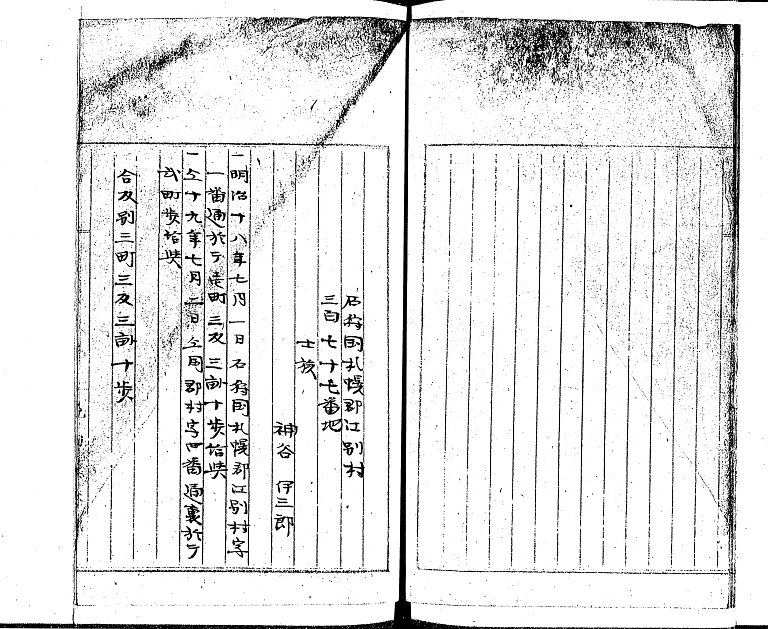 石狩国札幌郡江別村
三百七十七番地
士族
神谷 伊三郎
一明治十八年七月一日石狩国札幌郡江別村字
一番通於テ 町三反三畝十歩給与
一仝十九年七月二日仝国郡村字四番通裏於テ
弐町歩給与
合反別三町三反三畝十歩